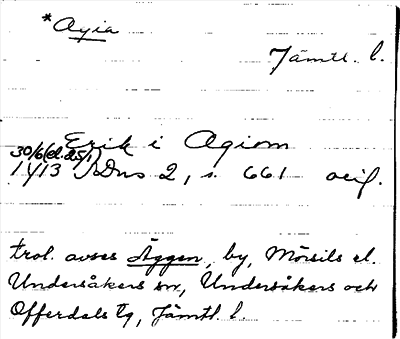 *Agia
Jämtl. l.
Erik i Agiom
30/6 (el. 25/1)
1413 SDns 2, s. 661 orig.
trol. avses Äggen, by, Mörsils el.
Undersåkers sn, Undersåkers och
Offerdals tg, Jämtl. l.